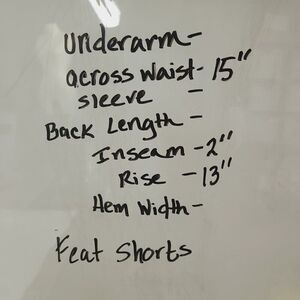 underarm-
across waist- 15"
sleeve -
Back Length -
Inseam -2"
Rise -13"
Hem Width-
Feat Shorts